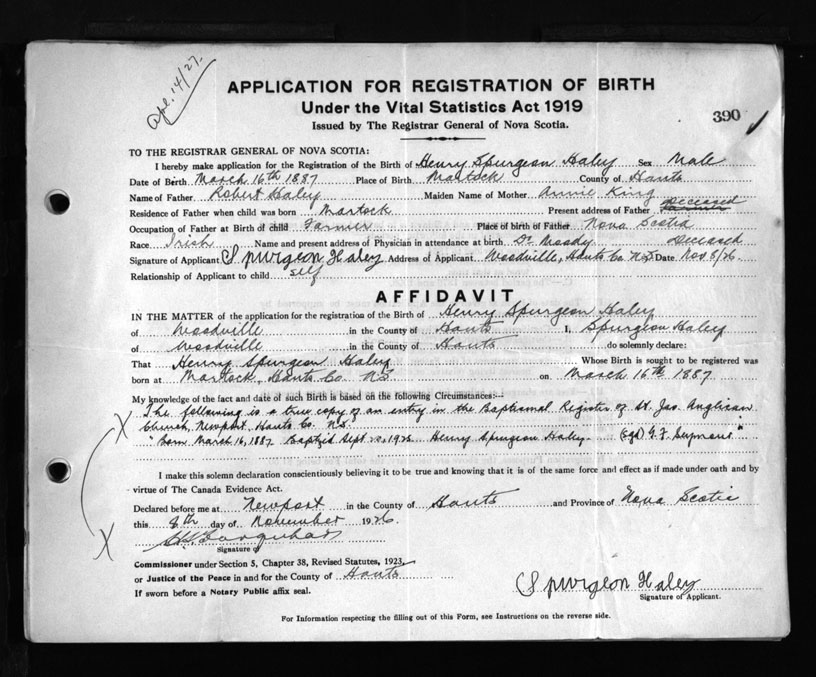 Apl. 14/27.
APPLICATION FOR REGISTRATION OF BIRTH
Under the Vital Statistics Act 1919
Issued by The Registrar General of Nova Scotia.
390
TO THE REGISTRAR GENERAL OF NOVA SCOTIA:
I hereby make application for the Registration of the Birth of Henry Spurgeon Haley Sex Male
Date of Birth March 16th 1887 Place of Birth Martock County of Hants
Name of Father Robert Haley Maiden Name of Mother Annie King
Residence of Father when child was born Martock Present address of Father deceased
Occupation of Father at Birth of child Farmer Place of birth of Father Nova Scotia
Race Irish Name and present address of Physician in attendance at birth Dr Moody Deceased
Signature of Applicant Spurgeon Haley Address of Applicant Woodville, Hants Co N.S. Date Nov 8/26.
Relationship of Applicant to child self
AFFIDAVIT
IN THE MATTER of the application for the registration of the Birth of Henry Spurgeon Haley
of Woodville in the County of Hants I, Spurgeon Haley
of Woodville in the County of Hants do solemnly declare:
That Henry Spurgeon Haley Whose Birth is sought to be registered was
born at Martock, Hants Co. N.S. on March 16th 1887
My knowledge of the fact and date of such Birth is based on the following Circumstances:--
X The following is a true copy of an entry in the Baptismal Register of St. Jas. Anglican
Church, Newport, Hants Co. N.S.
"Born March 16, 1887 Baptizd Sept. 1926 Henry Spurgeon Haley. (sgd) G. F. Seymour"
I make this solemn declaration conscientiously believing it to be true and knowing that it is of the same force and effect as if made under oath and by
virtue of The Canada Evidence Act.
Declared before me at Newport in the County of Hants and Province of Nova Scotia
this 8th day of November 1926.
X Farquhar
Signature of
Commissioner under Section 5, Chapter 38, Revised Statutes, 1923,
or Justice of the Peace in and for the County of Hants
If sworn before a Notary Public affix seal.
Spurgeon Haley
Signature of Applicant.
For Information respecting the filling out of this Form, see Instructions on the reverse side.